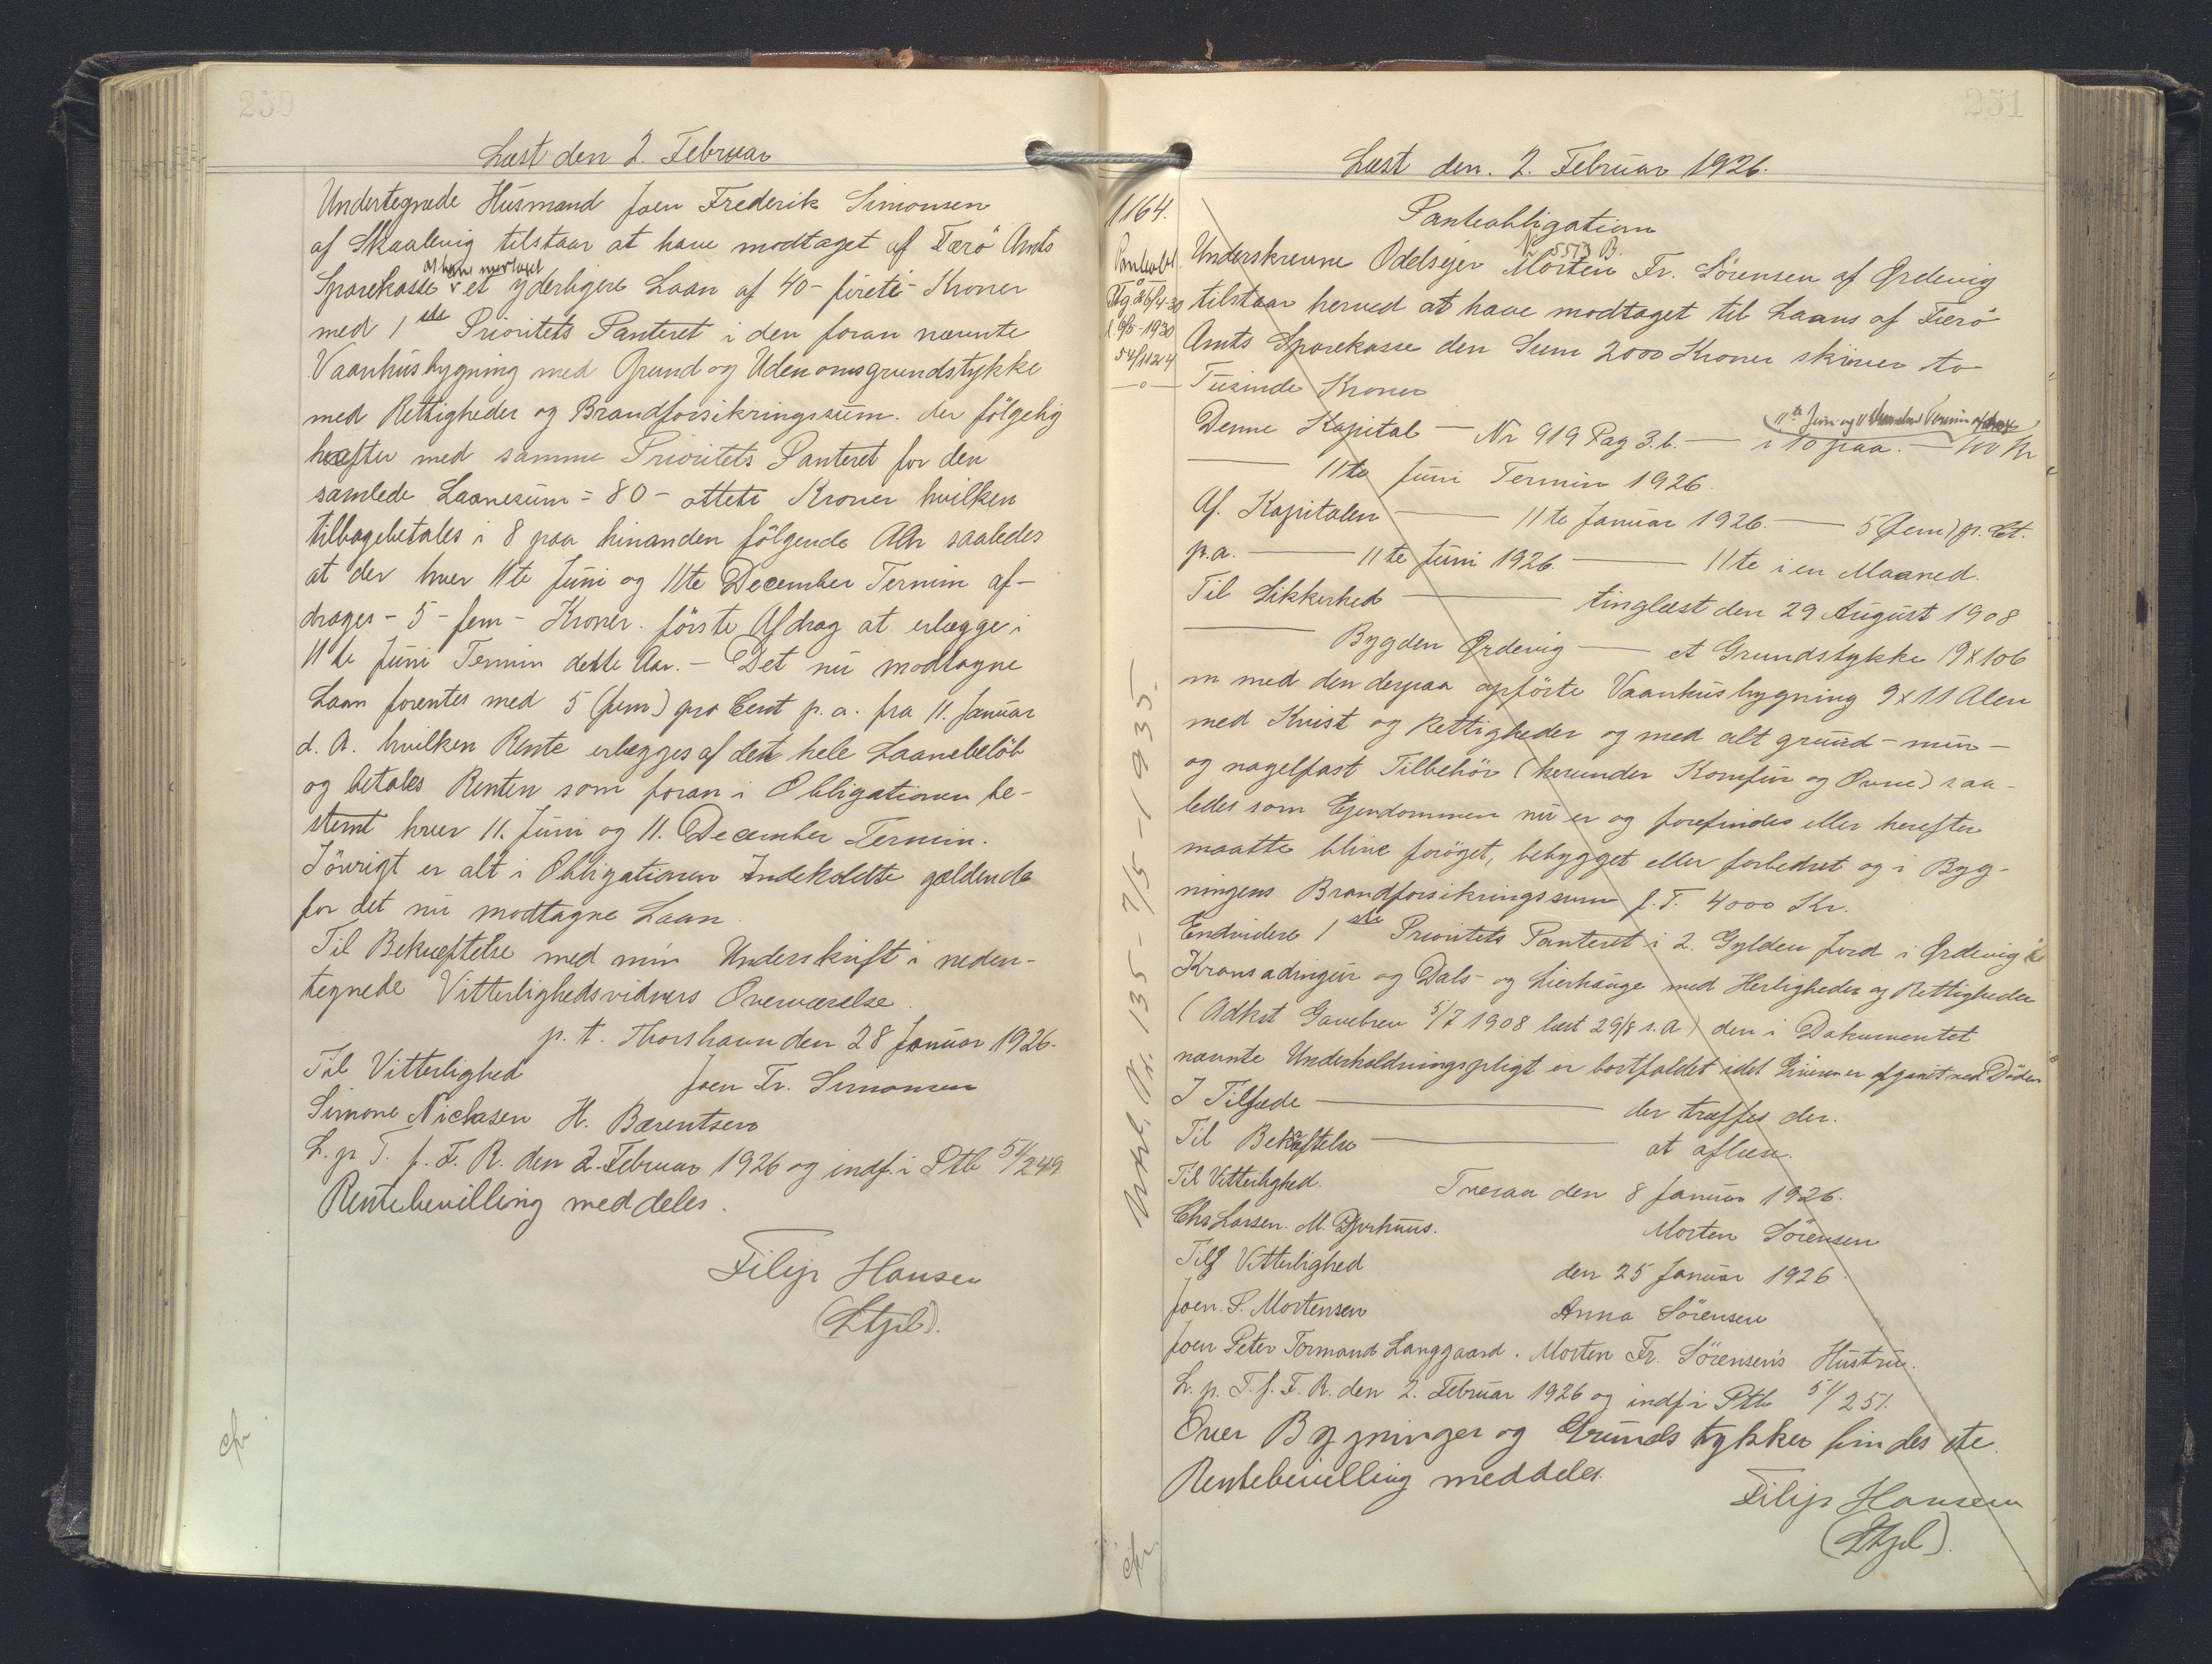 250
Læst den 2. Februar
Undertegnede Husmand Joen Frederik Simonsen
af Skaalevig tilstaar at have modtaget af Færö Amts
at have modtaget
Sparekasse et yderligere Laan af 40 - fireti - Kroner
med 1ste Prioritets Panteret i den foran nævnte
Vaanhusbygning med Grund og Udenomsgrundstykke
med Rettigheder og Brandforsikringssum. der fölgelig
hæfter med samme Prioritets Panteret for den
samlede Laanesum = 80 - otteti Kroner hvilken
tilbagebetales i 8 paa hinanden fölgende Aar saaledes
at der hver 11te Juni og 11te December Termin af-
drages - 5 - fem - Kroner. förste Afdrag at erlægge i
11te Juni Termin dette Aar. - Det nu modtagne
Laan forentes med 5 (fem) pro Cent p. a. fra 11. Januar
d. A. hvilken Rente erlægges af det hele Laanebelöb
og betales Renten som foran i Obligationen be-
stemt hver 11. Juni og 11. December Termin.
Iövrigt er alt i Obligationen Indeholdte gældende
for det nu modtagne Laan.
Til Bekræftelse med min Underskrift i neden-
tegnede Vitterlighedsvidners Overværelse.
p. t. Thorshavn den 28 Januar 1926.
Til Vitterlighed
Joen Fr. Simonsen
Simone Niclasen H. Bærentsen
L. p. T. f. F. R. den 2. Februar 1926 og indf. i Ptb 54/249
Rentebevilling meddeles.
Filip Hansen
(Stfil).
cfr
251
Læst den. 2. Februar 1926.
1164.
Panteobligation
Nr 5573 B.
Panteobl.
Underskrevne Odelsejer Morten Fr. Sörensen af Ørdevig
tilstaar herved at have modtaget til Laans af Færö
Amts Sparekasse den Sum 2000 Kroner skriver to
54/1124
Tusinde Kroner
11te Juni og 11 December Termin afdrages
Denne Kapital - Nr 919 Pag 3. b. - i 10 paa. - 100 Kr
11te Juni Termin 1926.
Af Kapitalen - 11te Januar 1926. - 5 (fem) p. Ct.
p. a. - 11te Juni 1926 - 11te i en Maaned.
Til Sikkerhed - tinglæst den 29 August 1908
- Bygden Ørdevig - et Grundstykke 19 x 106
m med den derpaa opförte Vaanhusbygning 9 x 11 Alen
med Kvist og Rettigheder og med alt grund - mur -
og nagelfast Tilbehör (herunder Komfur og Ovne) saa-
ledes som Ejendommen nu er og forefindes eller herefter
maatte blive foröget, bebygget eller forbedret og i Byg-
ningens Brandforsikringssum f. T. 4000 Kr.
Endvidere 1ste Prioritets Panteret i 2. Gylden Jord i Ørdevig i
Kransadingur og Dals- og Lierhauge med Herligheder og Rettigheder
(Adkst Gavebrev 5/7 1908 læst 29/8 s. A) den i Dokumentet
nævnte Underholdningspligt er bortfaldet idet Giveren er afgaaet ved Döden
I Tilfæde - der træffes der.
Til Bekræftelse - at aflæse.
Til Vitterlighed. Tveraa den 8 Januar 1926.
Chr Larsen. M. Djurhuus. Morten Sörensen
Til Vitterlighed den 25 Januar 1926.
Joen. P. Mortensen Anna Sörensen
Joen Peter Tormand Langgaard. Morten Fr. Sörensens Hustru.
L. p. T. f. F. R. den 2. Februar 1926 og indf i Ptb 54/251.
Over Bygninger og Grundstykker findes ste.
Rentebevilling meddeles.
Filip Hansen
(Stfil).
135 - 7/5 - 1935.
cfr.